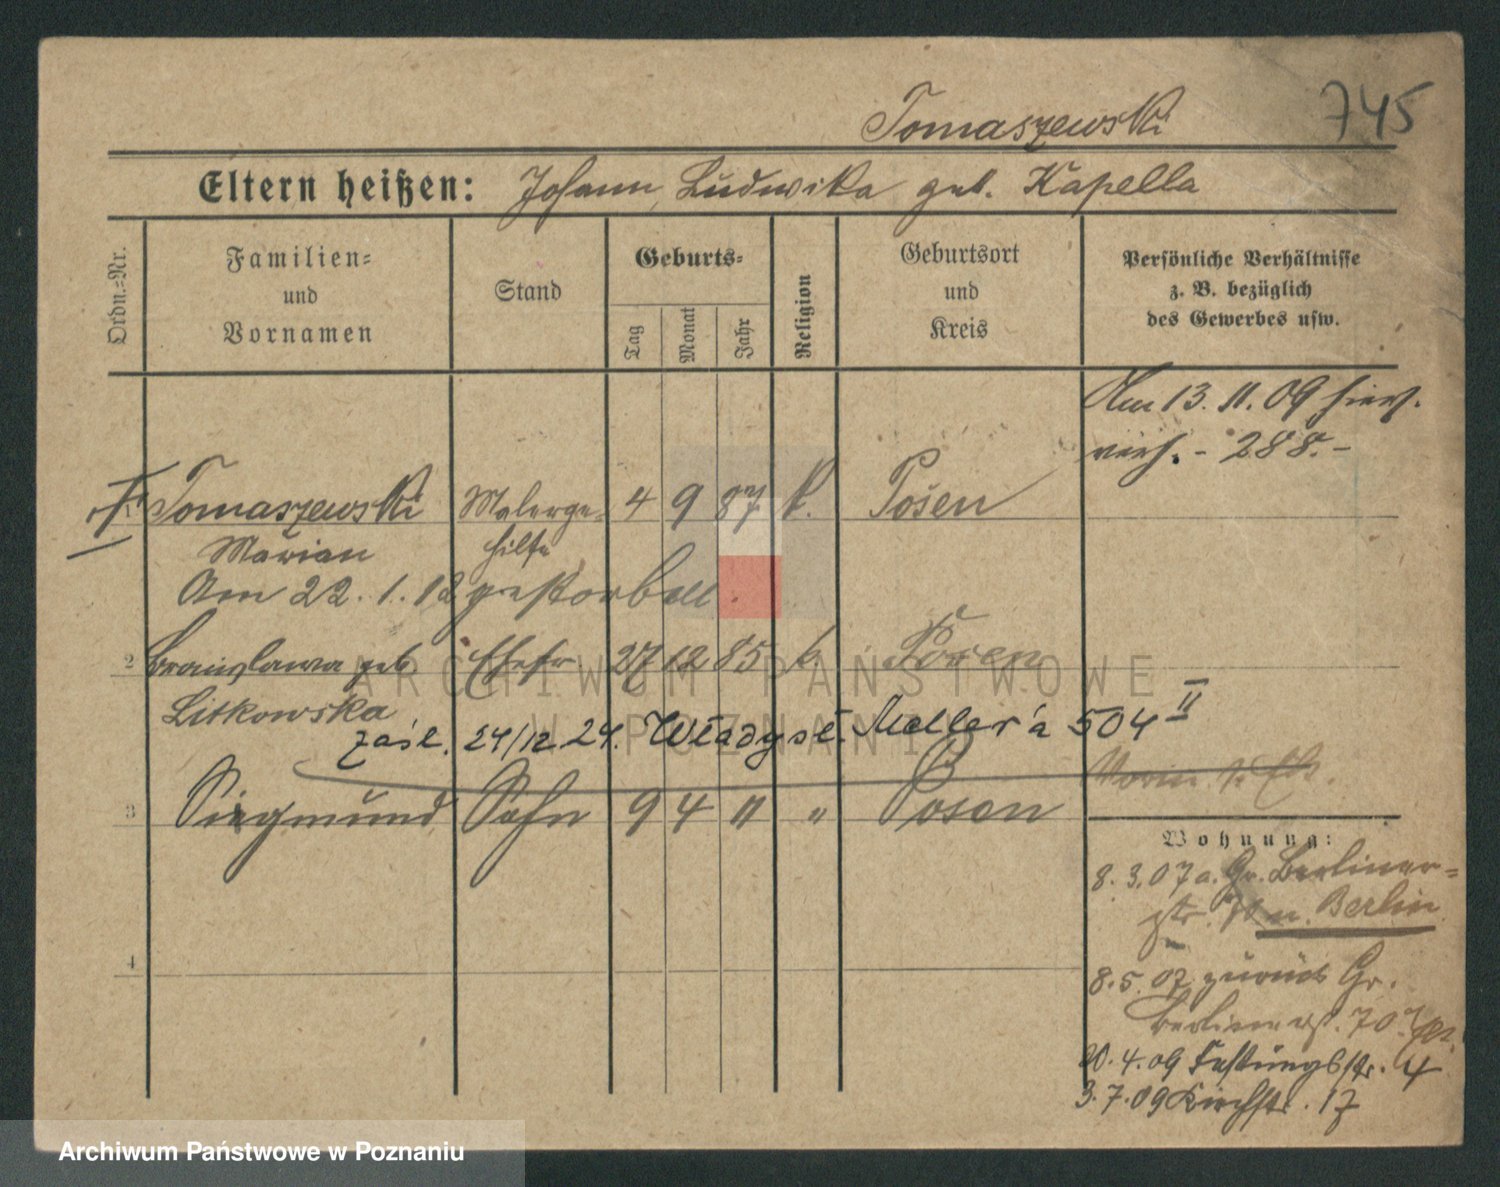 745
Tomaszewski
Eltern heißen: Johann, Ludwika geb. Kapella
Ordn.=Nr.
Familien=
und
Vornamen
Stand
Geburts=
Tag
Monat
Jahr
Religion
Geburtsort
und
Kreis
Persönliche Verhältnisse
z. B. bezüglich
des Gewerbes usw.
Am 13. 11. 09 hier
verh. - 288. -
1 Tomaszewski Malerge- 4 9 87 k. Posen
Marian hilfe
Am 22. 1. 12 gestorben.
2 Bronislawa geb Ehefr 27 12 85 k Posen
Litkowska
zaśl. 24/12 24. Władysł. Meller'a 504 II
3 Siegmund Sohn 9 4 11 " Posen
4
Wohnung:
8. 3. 07 a. Gr. Berliner=
str. n. Berlin
8. 5. 07 zurück Gr.
Berlinerstr. 70
20. 4. 09 Festungsstr. 4
3. 7. 09 Kirchstr. 17
ARCHIWUM PAŃSTWOWE
W POZNANIU
Archiwum Państwowe w Poznaniu